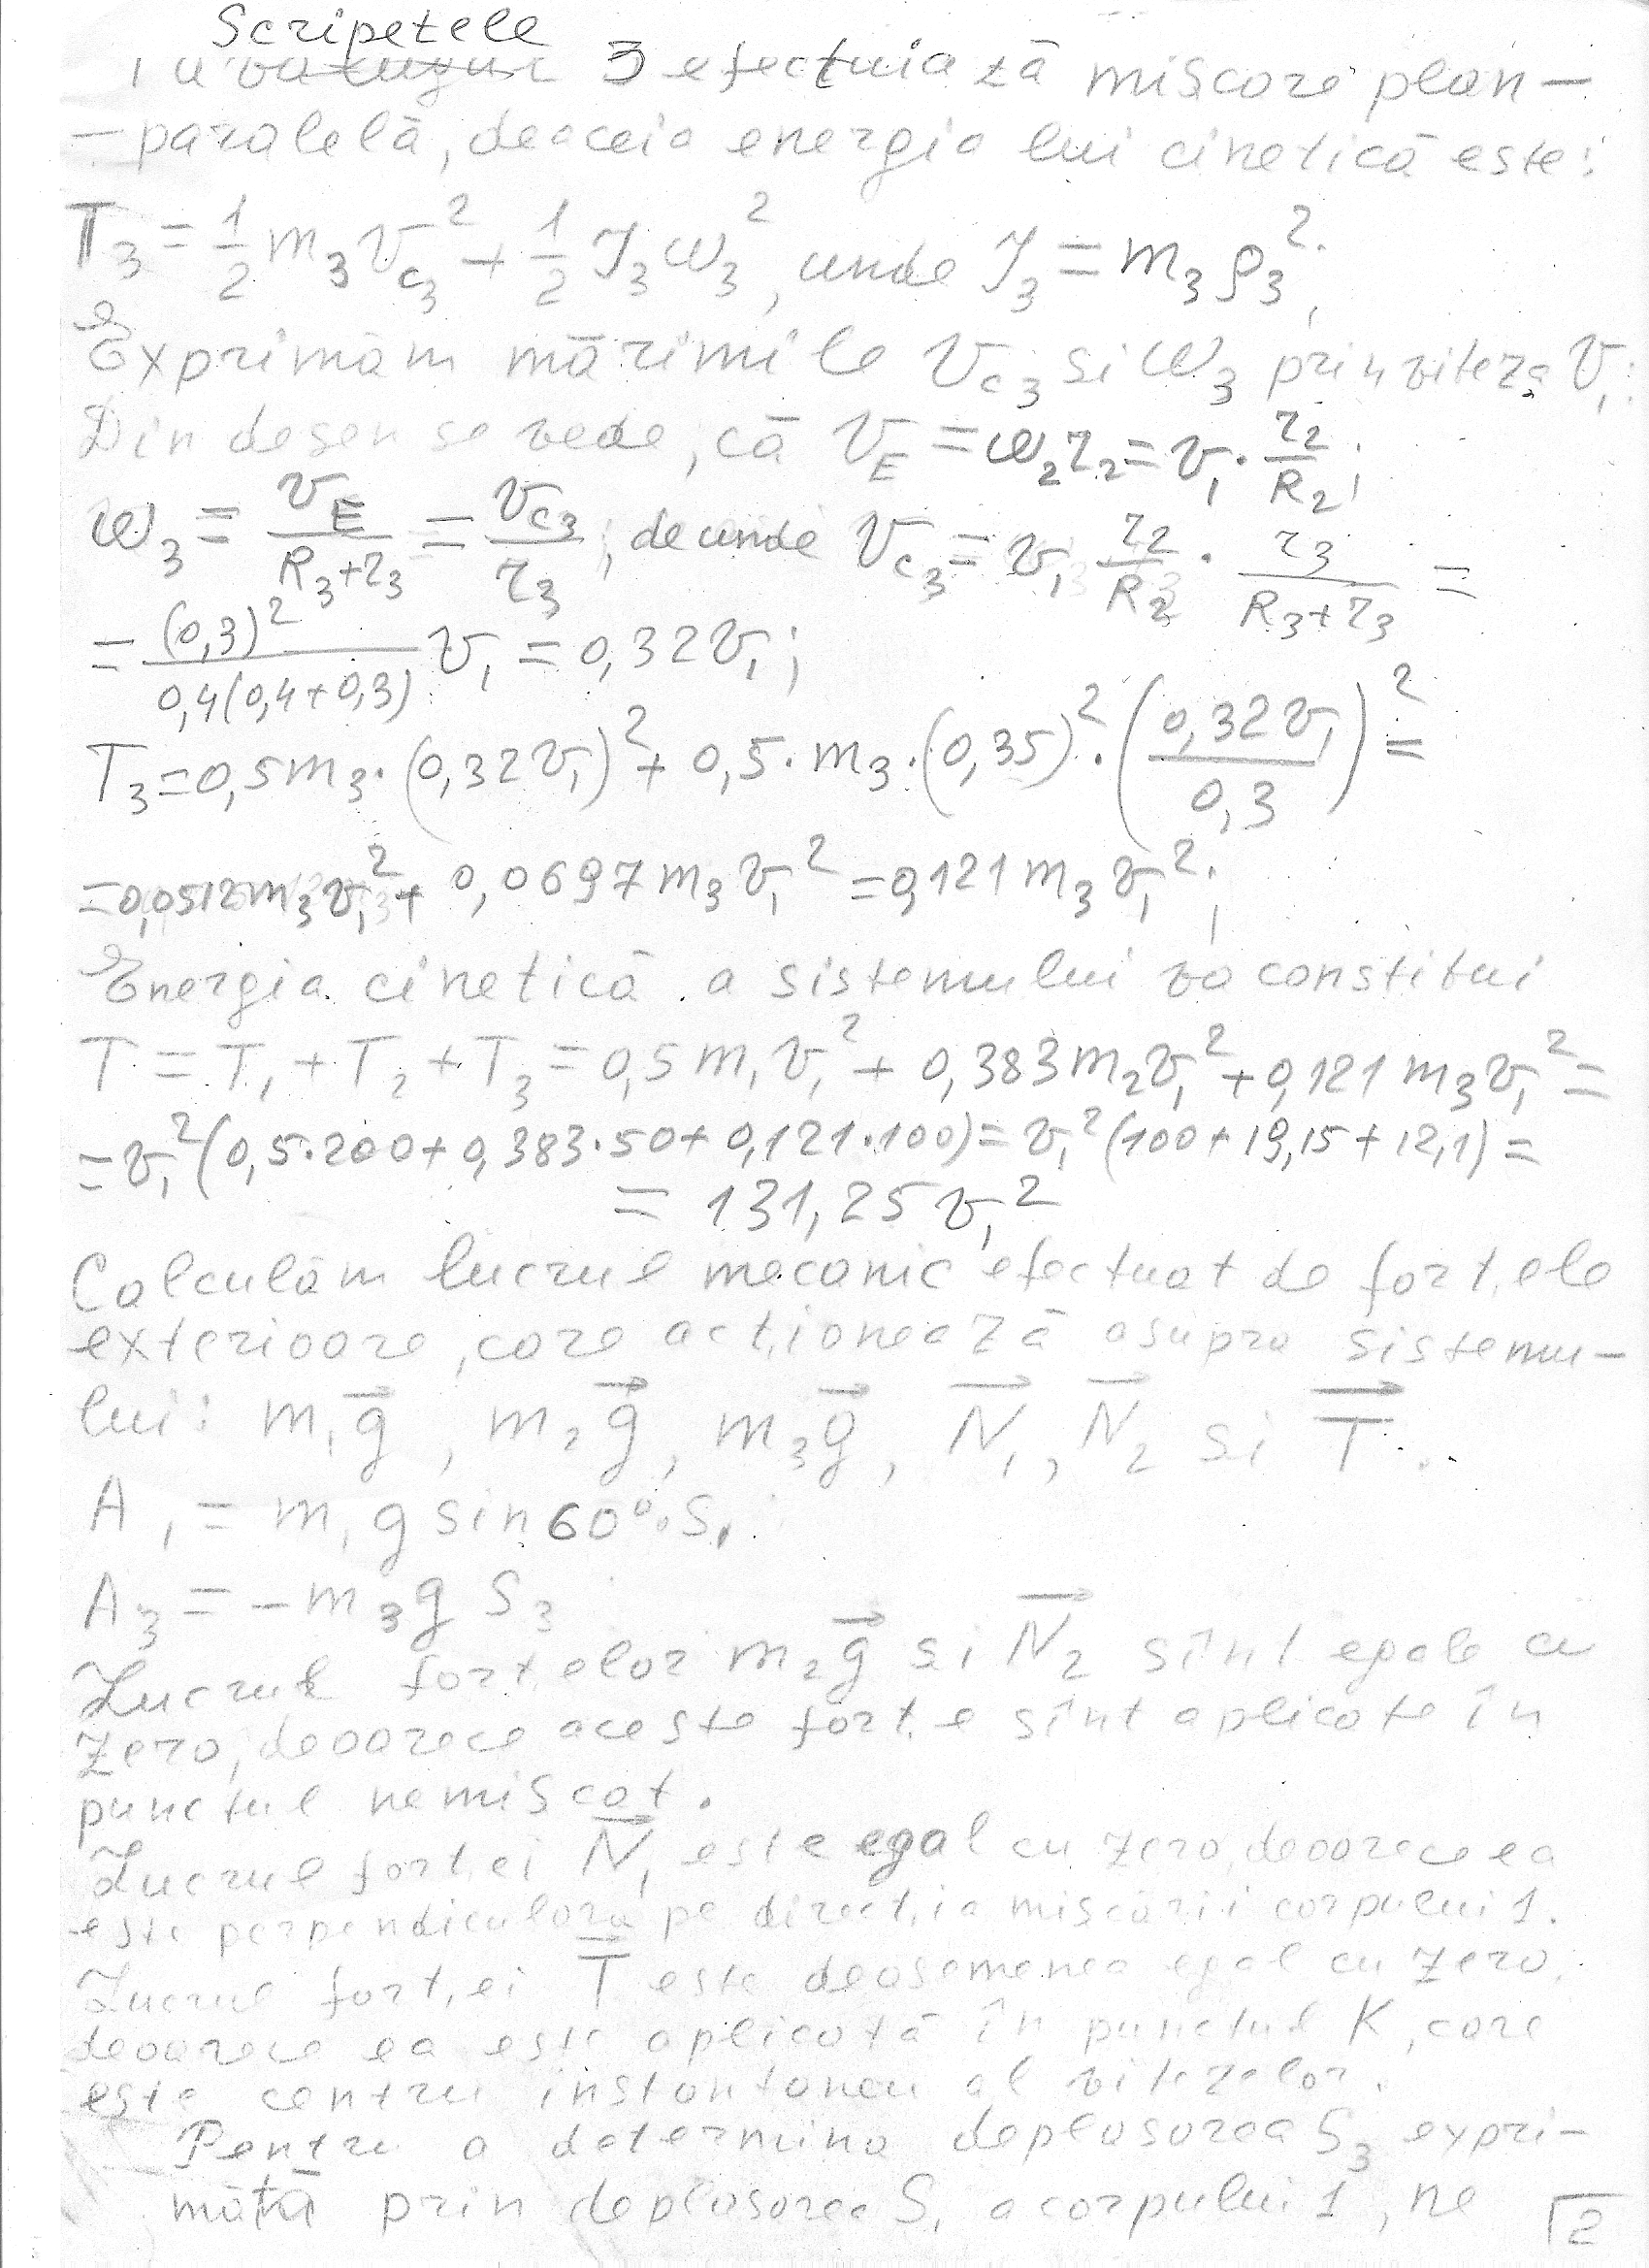 Scripetele
3 efectuiază mișcare plan-
-paralelă, deaceia energia lui cinetică este:
T₃ = 1/2 m₃ v_c₃² + 1/2 J₃ ω₃², unde J₃ = m₃ ρ₃²;
Exprimăm mărimile v_c₃ si ω₃ prin viteza v₁:
Din desen se vede, că v_E = ω₂ r₂ = v₁ · r₂/R₂;
ω₃ = v_E/(R₃+r₃) = v_c₃/r₃; de unde v_c₃ = v₁ r₂/R₂ · r₃/(R₃+r₃) =
= (0,3)²/(0,4(0,4+0,3)) v₁ = 0,32v₁;
T₃ = 0,5m₃·(0,32v₁)² + 0,5·m₃·(0,35)²·(0,32v₁/0,3)² =
= 0,0512m₃v₁² + 0,0697m₃v₁² = 0,121m₃v₁²;
Energia cinetică a sistemului va constitui
T = T₁ + T₂ + T₃ = 0,5m₁v₁² + 0,383m₂v₁² + 0,121m₃v₁² =
= v₁²(0,5·200 + 0,383·50 + 0,121·100) = v₁²(100 + 19,15 + 12,1) =
= 131,25v₁²
Calculăm lucrul mecanic efectuat de forțele
exterioare, care acționează asupra sistemu-
lui: m₁g⃗, m₂g⃗, m₃g⃗, N⃗₁, N⃗₂ si T⃗.
A₁ = m₁g sin60°·S₁
A₃ = -m₃g S₃
Lucrul forțelor m₂g⃗ si N⃗₂ sînt egale cu
zero, deoarece aceste forțe sînt aplicate în
punctul nemișcat.
Lucrul forței N⃗₁ este egal cu zero, deoarece ea
este perpendiculară pe direcția mișcării corpului 1.
Lucrul forței T⃗ este deasemenea egal cu zero,
deoarece ea este aplicată în punctul K, care
este centru instantaneu al vitezelor.
Pentru a determina deplasarea S₃ expri-
mată prin deplasarea S₁ a corpului 1, ne
2